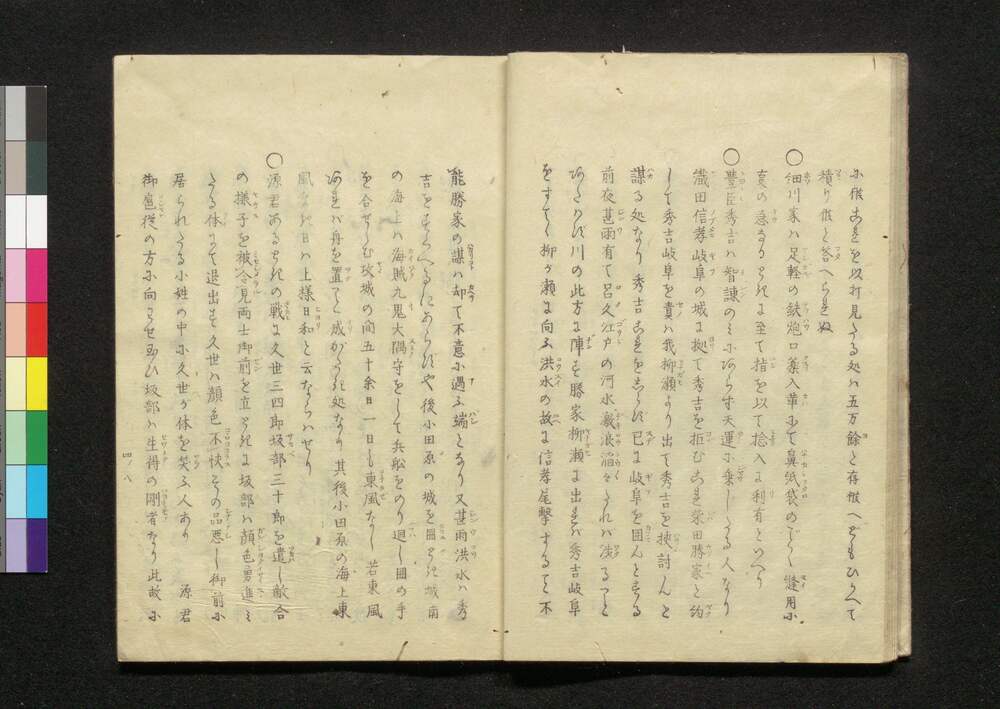 小仮名を以打見たる処ハ五万餘と存候へどもひかへて
積り候と答へられぬ
○細川家ハ足軽の鉄炮口薬入革にて鼻紙袋のごとく縫用ふ
袁の急なるときに至て指を以て捻入に利有といへり
○豊臣秀吉ハ智謀のミにあらず天運に乗じたる人なり
織田信孝岐阜の城に拠て秀吉を拒む是柴田勝家と約
して秀吉岐阜を責バ我柳瀬より出て秀吉を挟討んと
謀る処なり秀吉是をしらず已に岐阜を囲んとする
前夜甚雨有て呂久江戸の河水激浪滔々たれバ渡ること
あたハず川の此方に陣す勝家柳瀬に出れバ秀吉岐阜
をすてゝ柳ヶ瀬に向ふ洪水の故に信孝尾撃すること不
能勝家の謀ハ却て不意に遇ふ端となり又甚雨洪水ハ秀
吉をたすくるにあらずや後小田原の城を囲るとき城南
の海上ハ海賊九鬼大隅守をして兵船をのり廻し囲の手
を合せらる攻城の間五十余日一日も東風なし若東風
あれバ舟を置こと成がたき処なり其後小田原の海上東
風なき日ハ上様日和と云ならハせり
○源君あるときの戦に久世三四郎坂部三十郎を遣し敵合
の様子を被令見両士御前を立ときに坂部ハ顔色勇進ミ
たる体にて退出す久世ハ顔色不快その品悪し御前に
居られたる小姓の中に久世が体を笑ふ人あり　源君
御扈従の方に向ハせ玉ひ坂部ハ生得の剛者なり此故に
四ノ八